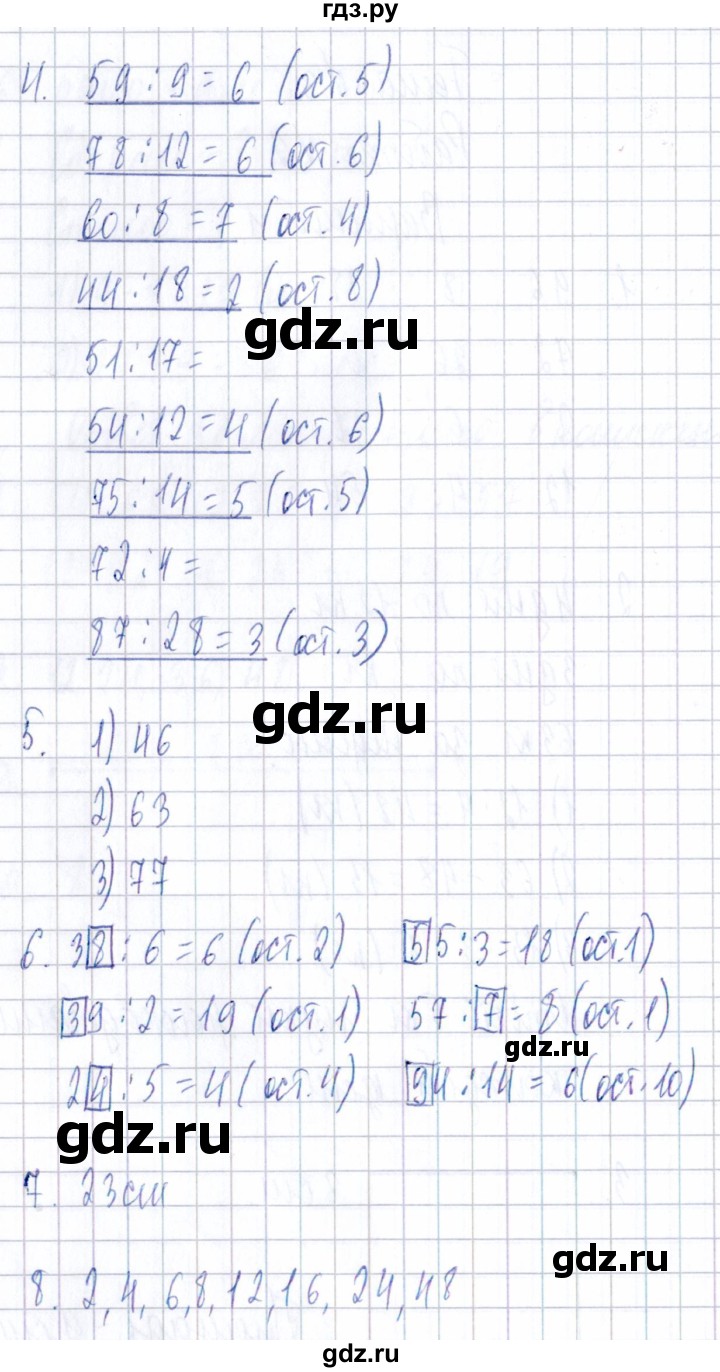 гдз.ру
4. 59 : 9 = 6 (ост. 5)
78 : 12 = 6 (ост. 6)
60 : 8 = 7 (ост. 4)
44 : 18 = 2 (ост. 8)
gdz.ru
51 : 17 =
54 : 12 = 4 (ост. 6)
75 : 14 = 5 (ост. 5)
72 : 4 =
87 : 28 = 3 (ост. 3)
gdz.ru
5. 1) 46
2) 63
3) 77
6. 38 : 6 = 6 (ост. 2) 55 : 3 = 18 (ост. 1)
39 : 2 = 19 (ост. 1) 57 : 7 = 8 (ост. 1)
gdz.ru
24 : 5 = 4 (ост. 4) 94 : 14 = 6 (ост. 10)
gdz.ru
7. 23 см
gdz.ru
8. 2, 4, 6, 8, 12, 16, 24, 48
гдз.ру